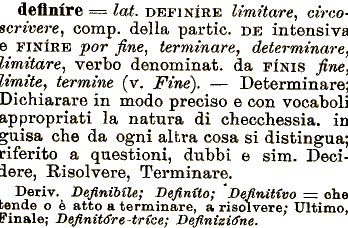 definíre = lat. DEFINÍRE limitare, circo-
scrivere, comp. della partic. DE intensiva
e FINÍRE por fine, terminare, determinare,
limitare, verbo denominat. da FÍNIS fine,
limite, termine (v. Fine). — Determinare;
Dichiarare in modo preciso e con vocaboli
appropriati la natura di checchessia. in
guisa che da ogni altra cosa si distingua;
riferito a questioni, dubbi e sim. Deci-
dere, Risolvere, Terminare.
Deriv. Definíbile; Definíto; Definitívo = che
tende o è atto a terminare, a risolvere; Ultimo,
Finale; Definitóre-tríce; Definizióne.